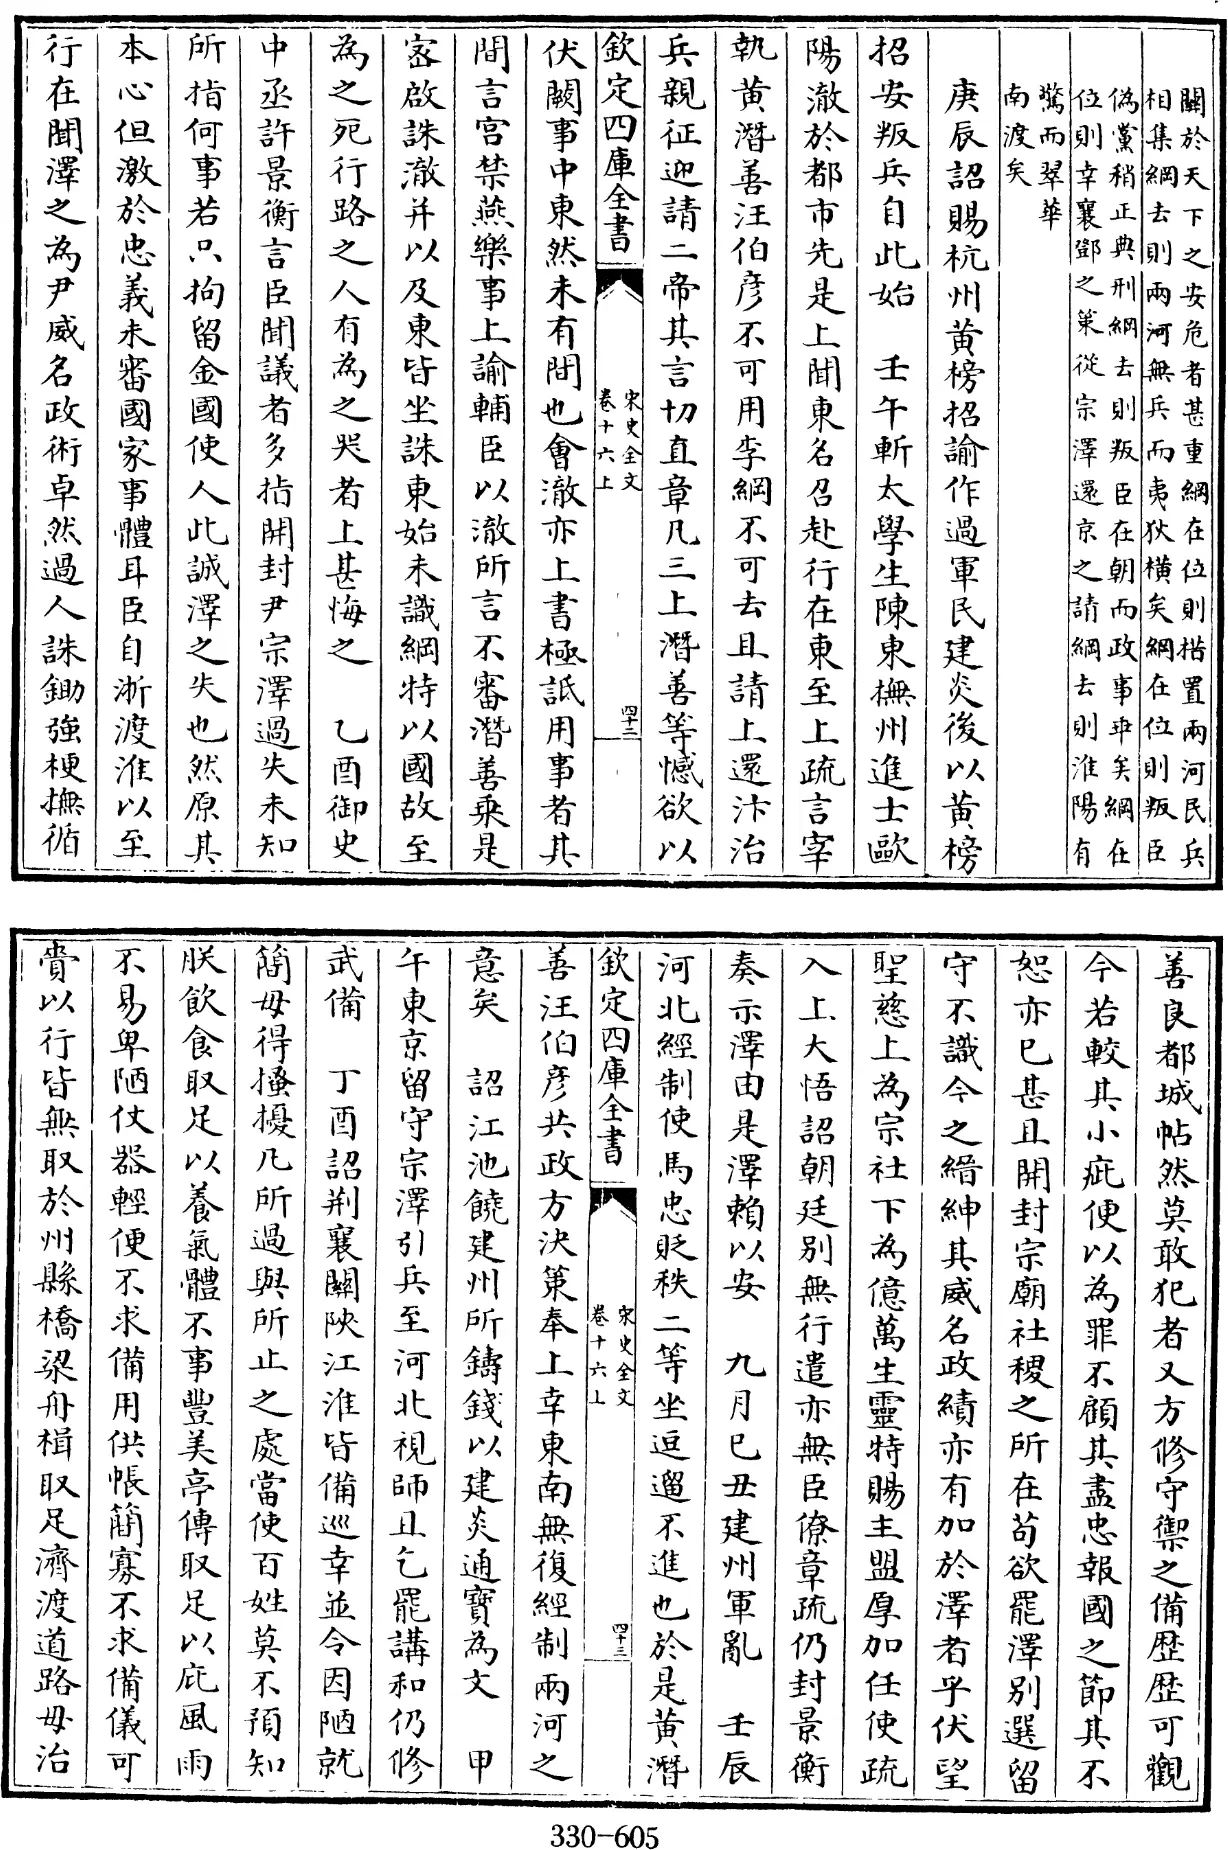 關於天下之安危者甚重綱在位則措置兩河民兵
相集綱去則兩河無兵而夷狄横矣綱在位則叛臣
偽黨稍正典刑綱去則叛臣在朝而政事乖矣綱在
位則幸襄鄧之策從宗澤還京之請綱去則淮陽有
驚而翠華
南渡矣
庚辰詔賜杭州黄榜招諭作過軍民建炎後以黄榜
招安叛兵自此始　壬午斬太學生陳東撫州進士歐
陽澈於都市先是上聞東名召赴行在東至上疏言宰
執黄潛善汪伯彦不可用李綱不可去且請上還汴治
兵親征迎請二帝其言切直章凡三上潛善等憾欲以
欽定四庫全書
宋史全文
卷十六上
四十三
伏闕事中東然未有間也會澈亦上書極詆用事者其
間言宫禁燕樂事上諭輔臣以澈所言不審潛善乘是
宻啟誅澈并以及東皆坐誅東始未識綱特以國故至
為之死行路之人有為之哭者上甚悔之　乙酉御史
中丞許景衡言臣聞議者多指開封尹宗澤過失未知
所指何事若只拘留金國使人此誠澤之失也然原其
本心但激於忠義未審國家事體耳臣自浙渡淮以至
行在聞澤之為尹威名政術卓然過人誅鋤強梗撫循
善良都城帖然莫敢犯者又方修守禦之備歴歴可觀
今若較其小疵便以為罪不顧其盡忠報國之節其不
恕亦已甚且開封宗廟社稷之所在苟欲罷澤别選留
守不識今之縉紳其威名政績亦有加於澤者乎伏望
聖慈上為宗社下為億萬生靈特賜主盟厚加任使疏
入上大悟詔朝廷别無行遣亦無臣僚章疏仍封景衡
奏示澤由是澤賴以安　九月己丑建州軍亂　壬辰
河北經制使馬忠貶秩二等坐逗遛不進也於是黄潛
欽定四庫全書
宋史全文
卷十六上
四十三
善汪伯彦共政方決策奉上幸東南無復經制兩河之
意矣　詔江池饒建州所鑄錢以建炎通寳為文　甲
午東京留守宗澤引兵至河北視師且乞罷講和仍修
武備　丁酉詔荆襄關陝江淮皆備巡幸並令因陋就
簡毋得搔擾凡所過與所止之處當使百姓莫不預知
朕飲食取足以養氣體不事豐美亭傳取足以庇風雨
不易卑陋仗器輕便不求備用供帳簡寡不求備儀可
賫以行皆無取於州縣橋梁舟楫取足濟渡道路毋治
330-605